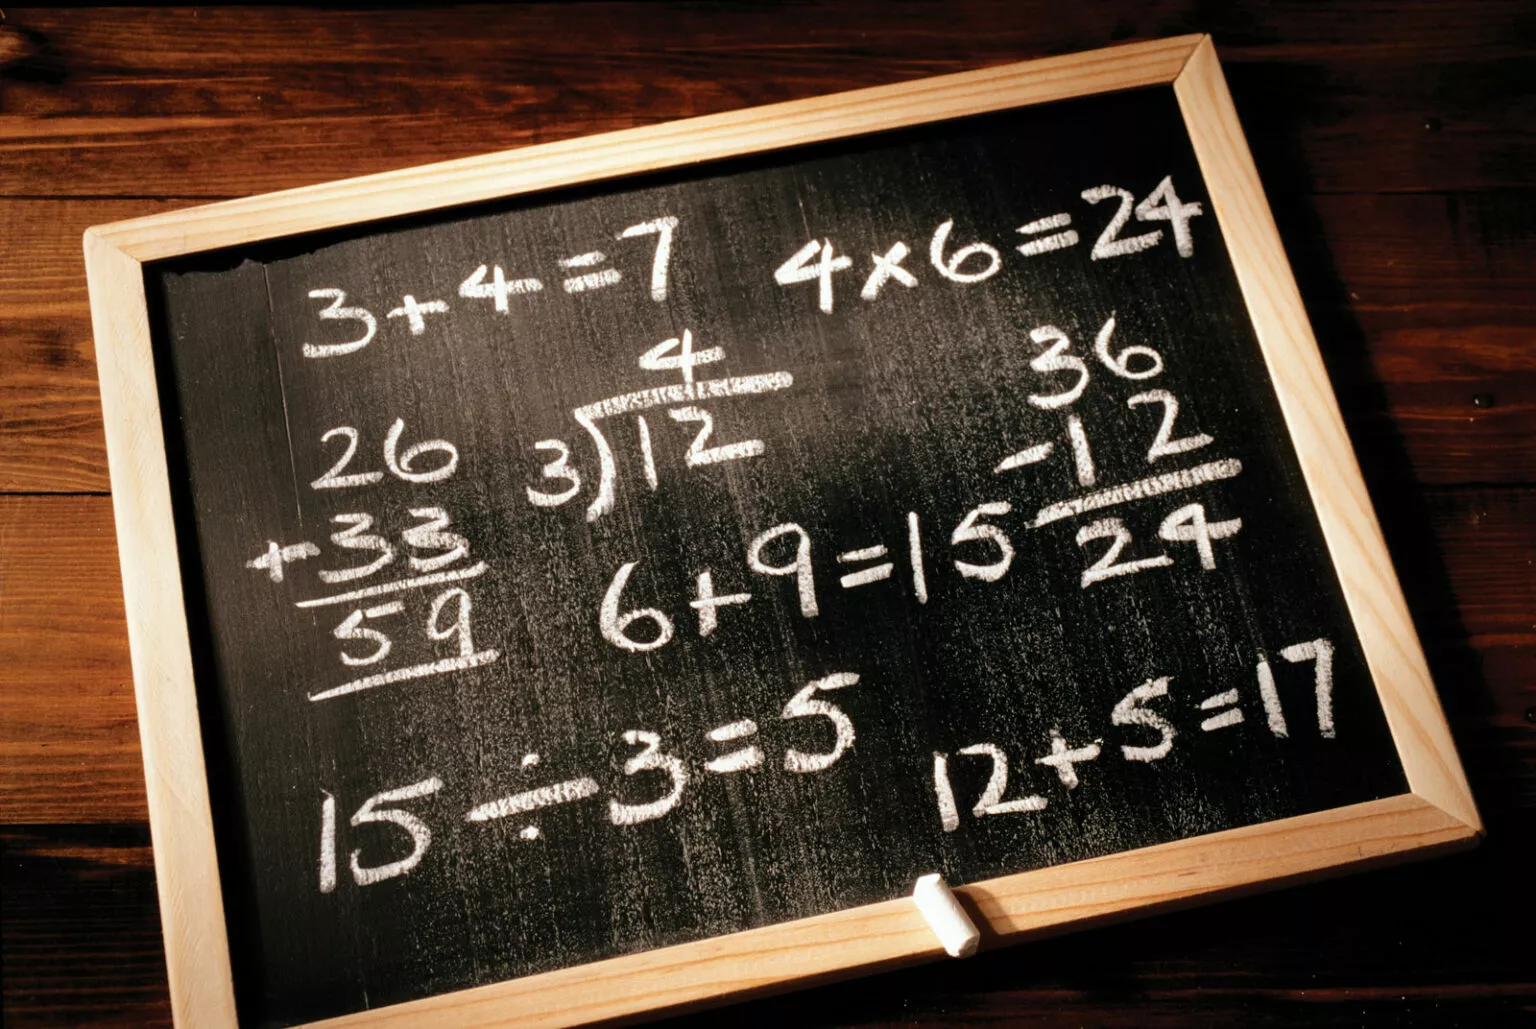 3+4=7
4×6=24
4
3)12
36
-12
24
26
+33
59
6+9=15
15÷3=5
12+5=17